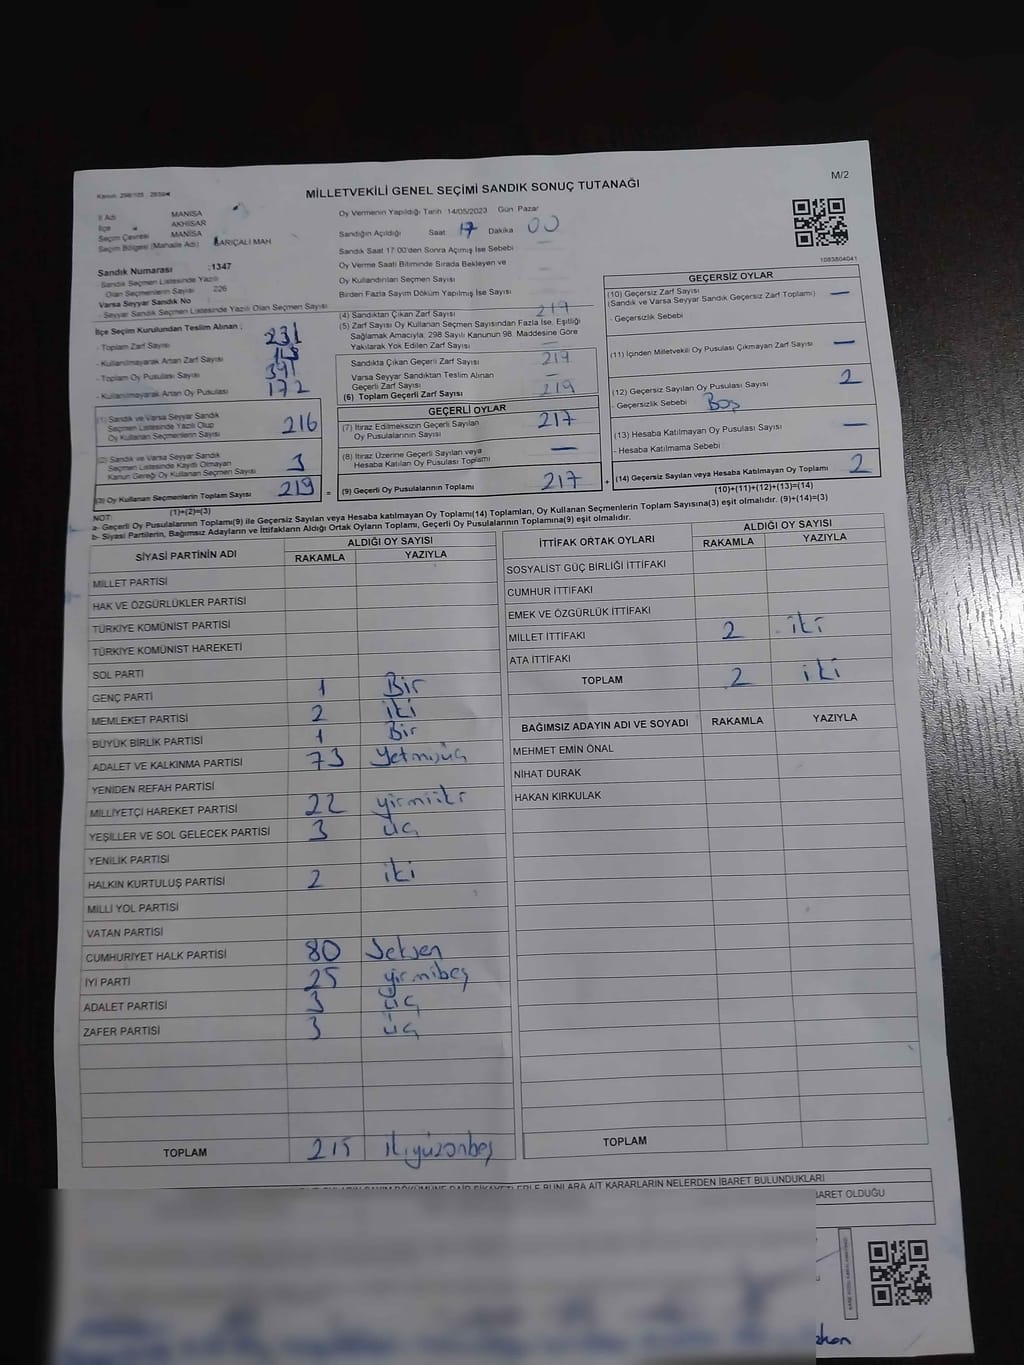 MİLLETVEKİLİ GENEL SEÇİMİ SANDIK SONUÇ TUTANAĞI
M/2
İl Adı MANİSA
İlçe AKHİSAR
Seçim Çevresi MANİSA
Seçim Bölgesi (Mahalle Adı) ARIÇALI MAH
Sandık Numarası :1347
Sandık Seçmen Listesinde Yazılı
Olan Seçmenlerin Sayısı 226
Varsa Seyyar Sandık No
- Seyyar Sandık Seçmen Listesinde Yazılı Olan Seçmen Sayısı
Oy Vermenin Yapıldığı Tarih :14/05/2023 Gün :Pazar
Sandığın Açıldığı Saat 17 Dakika 00
Sandık Saat 17:00'den Sonra Açılmış İse Sebebi
Oy Verme Saati Bitiminde Sırada Bekleyen ve
Oy Kullandırılan Seçmen Sayısı
Birden Fazla Sayım Döküm Yapılmış İse Sayısı
1083804041
İlçe Seçim Kurulundan Teslim Alınan ;
- Toplam Zarf Sayısı 231
- Kullanılmayarak Artan Zarf Sayısı
- Toplam Oy Pusulası Sayısı 391
- Kullanılmayarak Artan Oy Pusulası 172
(1) Sandık ve Varsa Seyyar Sandık
Seçmen Listesinde Yazılı Olup
Oy Kullanan Seçmenlerin Sayısı 216
(2) Sandık ve Varsa Seyyar Sandık
Seçmen Listesinde Kaydı Olmayan
Kanun Gereği Oy Kullanan Seçmen Sayısı 3
(3) Oy Kullanan Seçmenlerin Toplam Sayısı 219
(1)+(2)=(3)
(4) Sandıktan Çıkan Zarf Sayısı 219
(5) Zarf Sayısı Oy Kullanan Seçmen Sayısından Fazla İse, Eşitliği
Sağlamak Amacıyla; 298 Sayılı Kanunun 98. Maddesine Göre
Yakılarak Yok Edilen Zarf Sayısı
Sandıkta Çıkan Geçerli Zarf Sayısı 219
Varsa Seyyar Sandıktan Teslim Alınan
Geçerli Zarf Sayısı –
(6) Toplam Geçerli Zarf Sayısı 219
GEÇERLİ OYLAR
(7) İtiraz Edilmeksizin Geçerli Sayılan
Oy Pusulalarının Sayısı 217
(8) İtiraz Üzerine Geçerli Sayılan veya
Hesaba Katılan Oy Pusulası Toplamı —
= (9) Geçerli Oy Pusulalarının Toplamı 217
GEÇERSİZ OYLAR
(10) Geçersiz Zarf Sayısı —
(Sandık ve Varsa Seyyar Sandık Geçersiz Zarf Toplamı)
- Geçersizlik Sebebi
(11) İçinden Milletvekili Oy Pusulası Çıkmayan Zarf Sayısı —
(12) Geçersiz Sayılan Oy Pusulası Sayısı 2
- Geçersizlik Sebebi Boş
(13) Hesaba Katılmayan Oy Pusulası Sayısı —
- Hesaba Katılmama Sebebi
+ (14) Geçersiz Sayılan veya Hesaba Katılmayan Oy Toplamı 2
(10)+(11)+(12)+(13)=(14)
NOT:
a- Geçerli Oy Pusulalarının Toplamı(9) ile Geçersiz Sayılan veya Hesaba Katılmayan Oy Toplamı(14) Toplamları, Oy Kullanan Seçmenlerin Toplam Sayısına(3) eşit olmalıdır. (9)+(14)=(3)
b- Siyasi Partilerin, Bağımsız Adayların ve İttifakların Aldığı Ortak Oyların Toplamı, Geçerli Oy Pusulalarının Toplamına(9) eşit olmalıdır.
SİYASİ PARTİNİN ADI ALDIĞI OY SAYISI
RAKAMLA YAZIYLA
MİLLET PARTİSİ
HAK VE ÖZGÜRLÜKLER PARTİSİ
TÜRKİYE KOMÜNİST PARTİSİ
TÜRKİYE KOMÜNİST HAREKETİ
SOL PARTİ
GENÇ PARTİ 1 Bir
MEMLEKET PARTİSİ 2 iki
BÜYÜK BİRLİK PARTİSİ 1 Bir
ADALET VE KALKINMA PARTİSİ 73 Yetmişüç
YENİDEN REFAH PARTİSİ
MİLLİYETÇİ HAREKET PARTİSİ 22 yirmiiki
YEŞİLLER VE SOL GELECEK PARTİSİ 3 üç
YENİLİK PARTİSİ
HALKIN KURTULUŞ PARTİSİ 2 iki
MİLLİ YOL PARTİSİ
VATAN PARTİSİ
CUMHURİYET HALK PARTİSİ 80 Seksen
İYİ PARTİ 25 yirmibeş
ADALET PARTİSİ 3 üç
ZAFER PARTİSİ 3 üç
TOPLAM 215 ikiyüzonbeş
İTTİFAK ORTAK OYLARI ALDIĞI OY SAYISI
RAKAMLA YAZIYLA
SOSYALİST GÜÇ BİRLİĞİ İTTİFAKI
CUMHUR İTTİFAKI
EMEK VE ÖZGÜRLÜK İTTİFAKI
MİLLET İTTİFAKI 2 iki
ATA İTTİFAKI
TOPLAM 2 iki
BAĞIMSIZ ADAYIN ADI VE SOYADI RAKAMLA YAZIYLA
MEHMET EMİN ÖNAL
NİHAT DURAK
HAKAN KIRKULAK
TOPLAM
BUNLARA AİT KARARLARIN NELERDEN İBARET BULUNDUKLARI
OLDUĞU